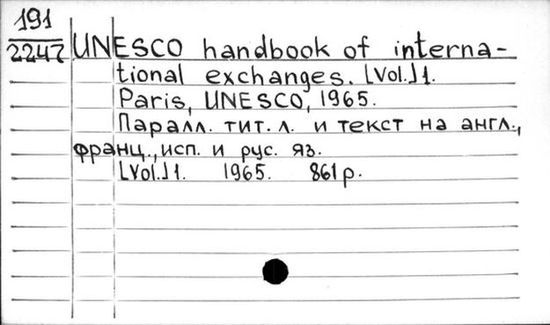 191
2247 UNESCO handbook of interna-
tional exchanges. [Vol.]1.
Paris, UNESCO, 1965.
Паралл. тит. л. и текст на англ.,
франц., исп. и рус. яз.
[Vol.]1. 1965. 861 p.